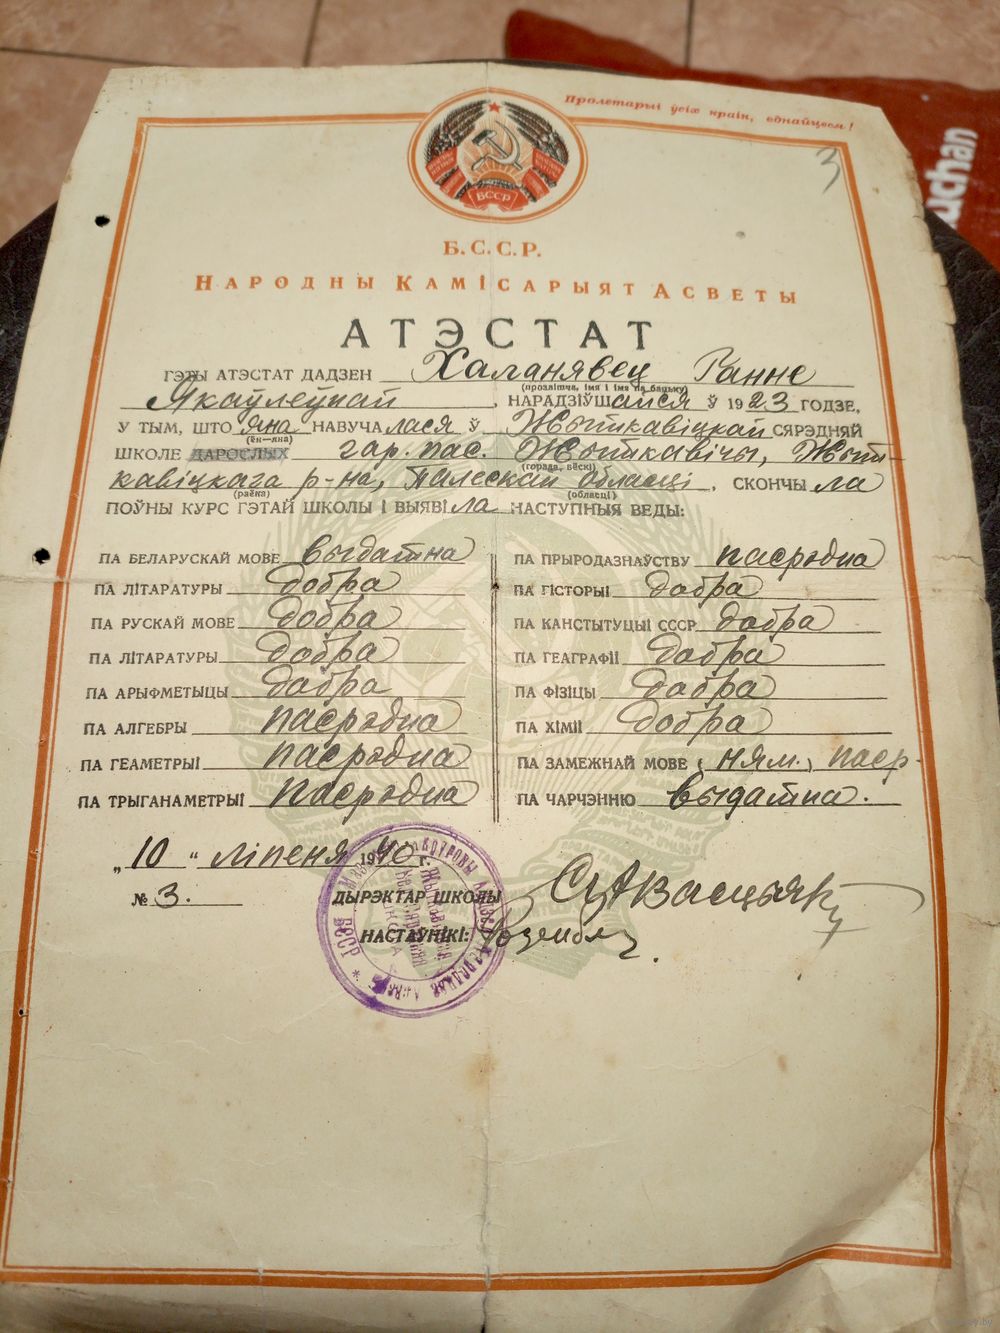 Пролетарыі ўсіх краін, еднайцеся!
3
БССР
Б.С.С.Р.
Народны Камісарыят Асветы
АТЭСТАТ
ГЭТЫ АТЭСТАТ ДАДЗЕН Халанявец Ганне
(прозвішча, імя і імя па бацьку)
Якаўлеўнай, НАРАДЗІЎШайся Ў 1923 ГОДЗЕ,
У ТЫМ, ШТО яна НАВУЧАлася Ў Жыткавіцкай СЯРЭДНЯЙ
(ён—яна)
ШКОЛЕ ДАРОСЛЫХ гар. пас. Жыткавічы, Жыт-
(горада, вёскі)
кавіцкага р-на, Палескай обласці, СКОНЧЫла
(раёна) (обласці)
ПОЎНЫ КУРС ГЭТАЙ ШКОЛЫ І ВЫЯВІла НАСТУПНЫЯ ВЕДЫ:
ПА БЕЛАРУСКАЙ МОВЕ выдатна
ПА ЛІТАРАТУРЫ добра
ПА РУСКАЙ МОВЕ добра
ПА ЛІТАРАТУРЫ добра
ПА АРЫФМЕТЫЦЫ добра
ПА АЛГЕБРЫ пасрэдна
ПА ГЕАМЕТРЫІ пасрэдна
ПА ТРЫГАНАМЕТРЫІ пасрэдна
ПА ПРЫРОДАЗНАЎСТВУ пасрэдна
ПА ГІСТОРЫІ добра
ПА КАНСТЫТУЦЫІ СССР добра
ПА ГЕАГРАФІІ добра
ПА ФІЗІЦЫ добра
ПА ХІМІІ добра
ПА ЗАМЕЖНАЙ МОВЕ (ням.) паср.
ПА ЧАРЧЭННЮ выдатна.
„10" ліпеня 1940 г.
№ 3.
ДЫРЭКТАР ШКОЛЫ
НАСТАЎНІКІ:
БССР
uchan